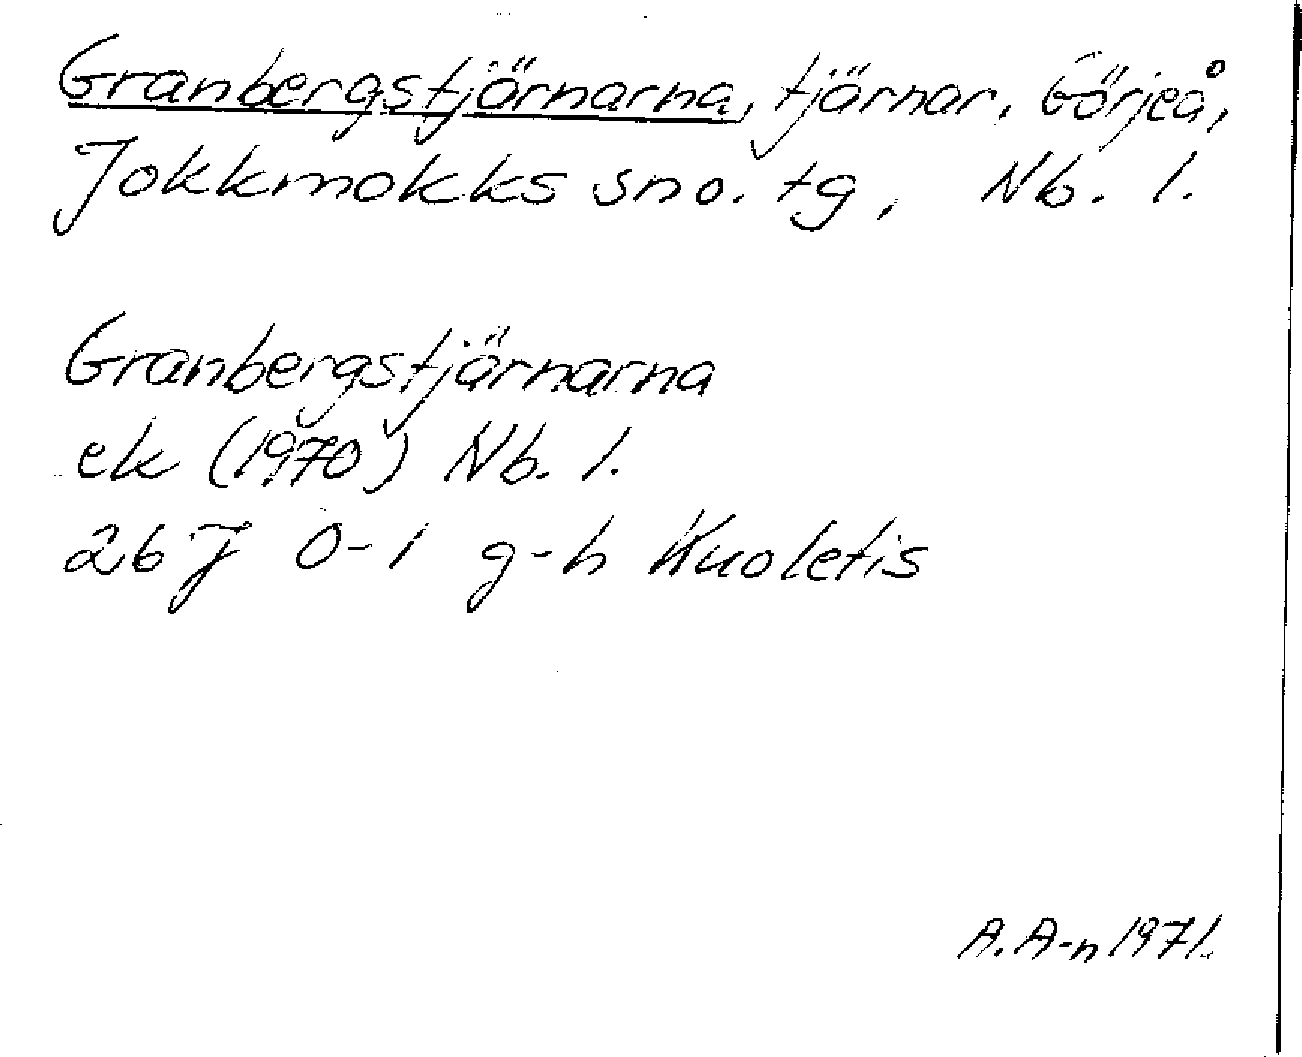 Granbergstjärnarna, tjärnar, Görjeå,
Jokkmokks sno. tg, Nb. l.
Granbergstjärnarna
ek (1970) Nb. l.
26 J 0-1 g-h Kuoletis
A. A-n 1971.